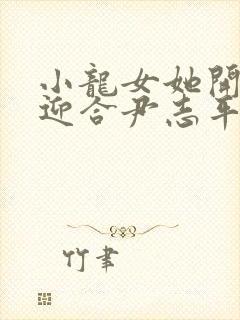 小龍女她開
迎合尹志平
竹聿